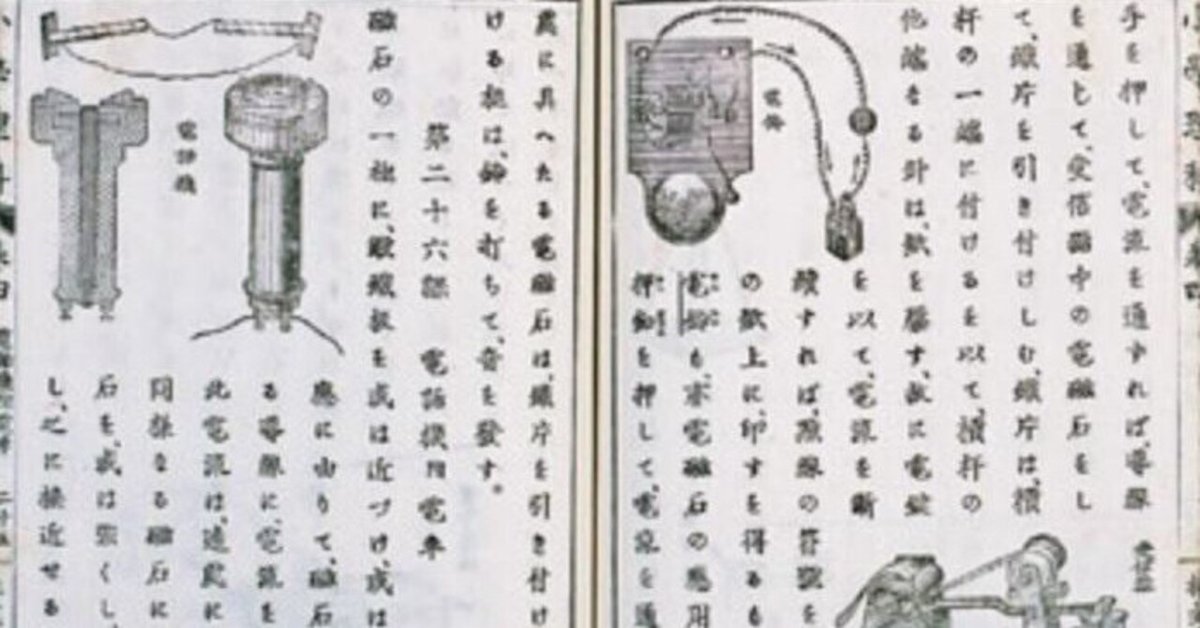 手を押して、電流を通すれば、導線
を通じて、受信器中の電磁石をし
て、鐵片を引き付けしむ、鐵片は、横
杆の一端に付けるを以て、横杆の
他端なる針は、紙を壓す、故に電鍵
を以て、電流を斷
續すれば、點線の符號を
の紙上に、印すを得るも
電鈴も、亦電磁石の應用
押釦を押して、電流を通
電鈴
處に具へたる電磁石は、鐵片を引き付け
ける槌は、鈴を打ちて、音を發す。
第二十六課 電話機 電車
磁石の一極に、軟鐵板を或は近づけ、或は
應に由りて、磁石
る導線に、電流を
此電流は、遠處に
同樣なる磁石に
石を、或は強くし、
し、之に接近せる
電話機